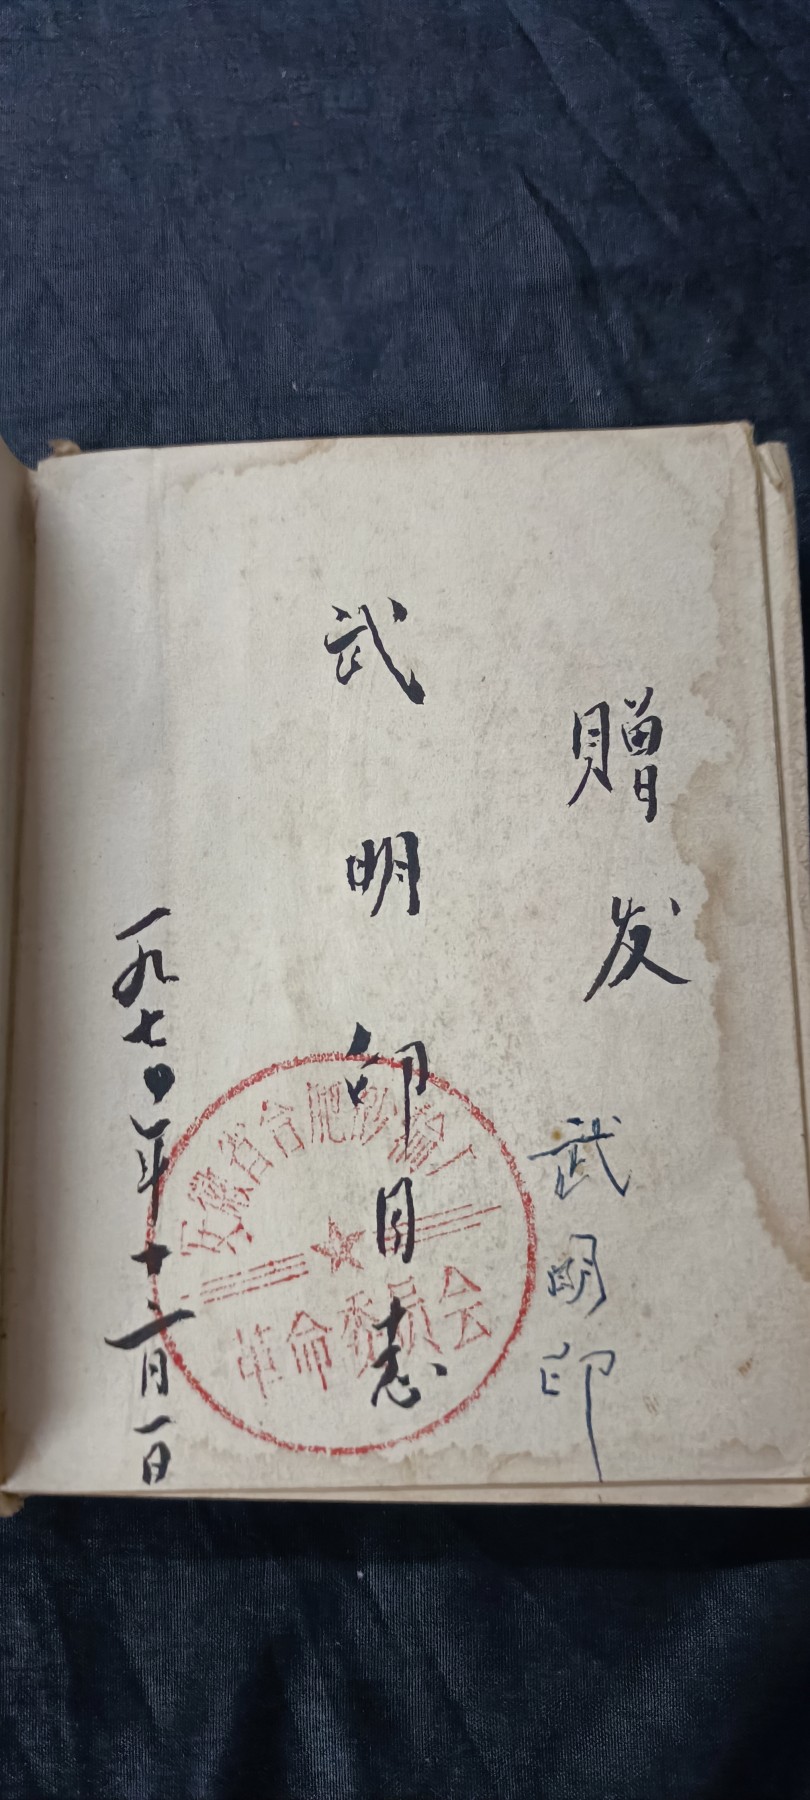 赠发
武明印
武明印同志
一九七〇年十二月一日
安徽省合肥厂
革命委员会